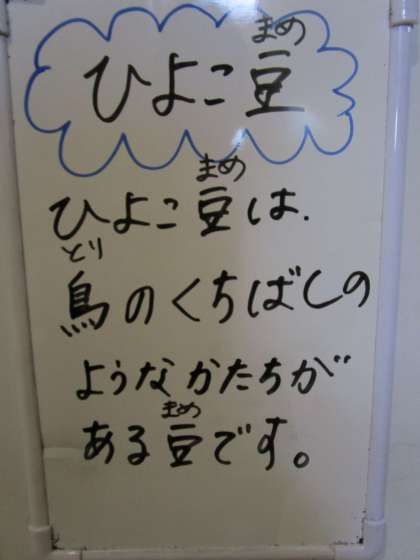 まめ
ひよこ豆
まめ
ひよこ豆は、
とり
鳥のくちばしの
ようなかたちが
まめ
ある豆です。